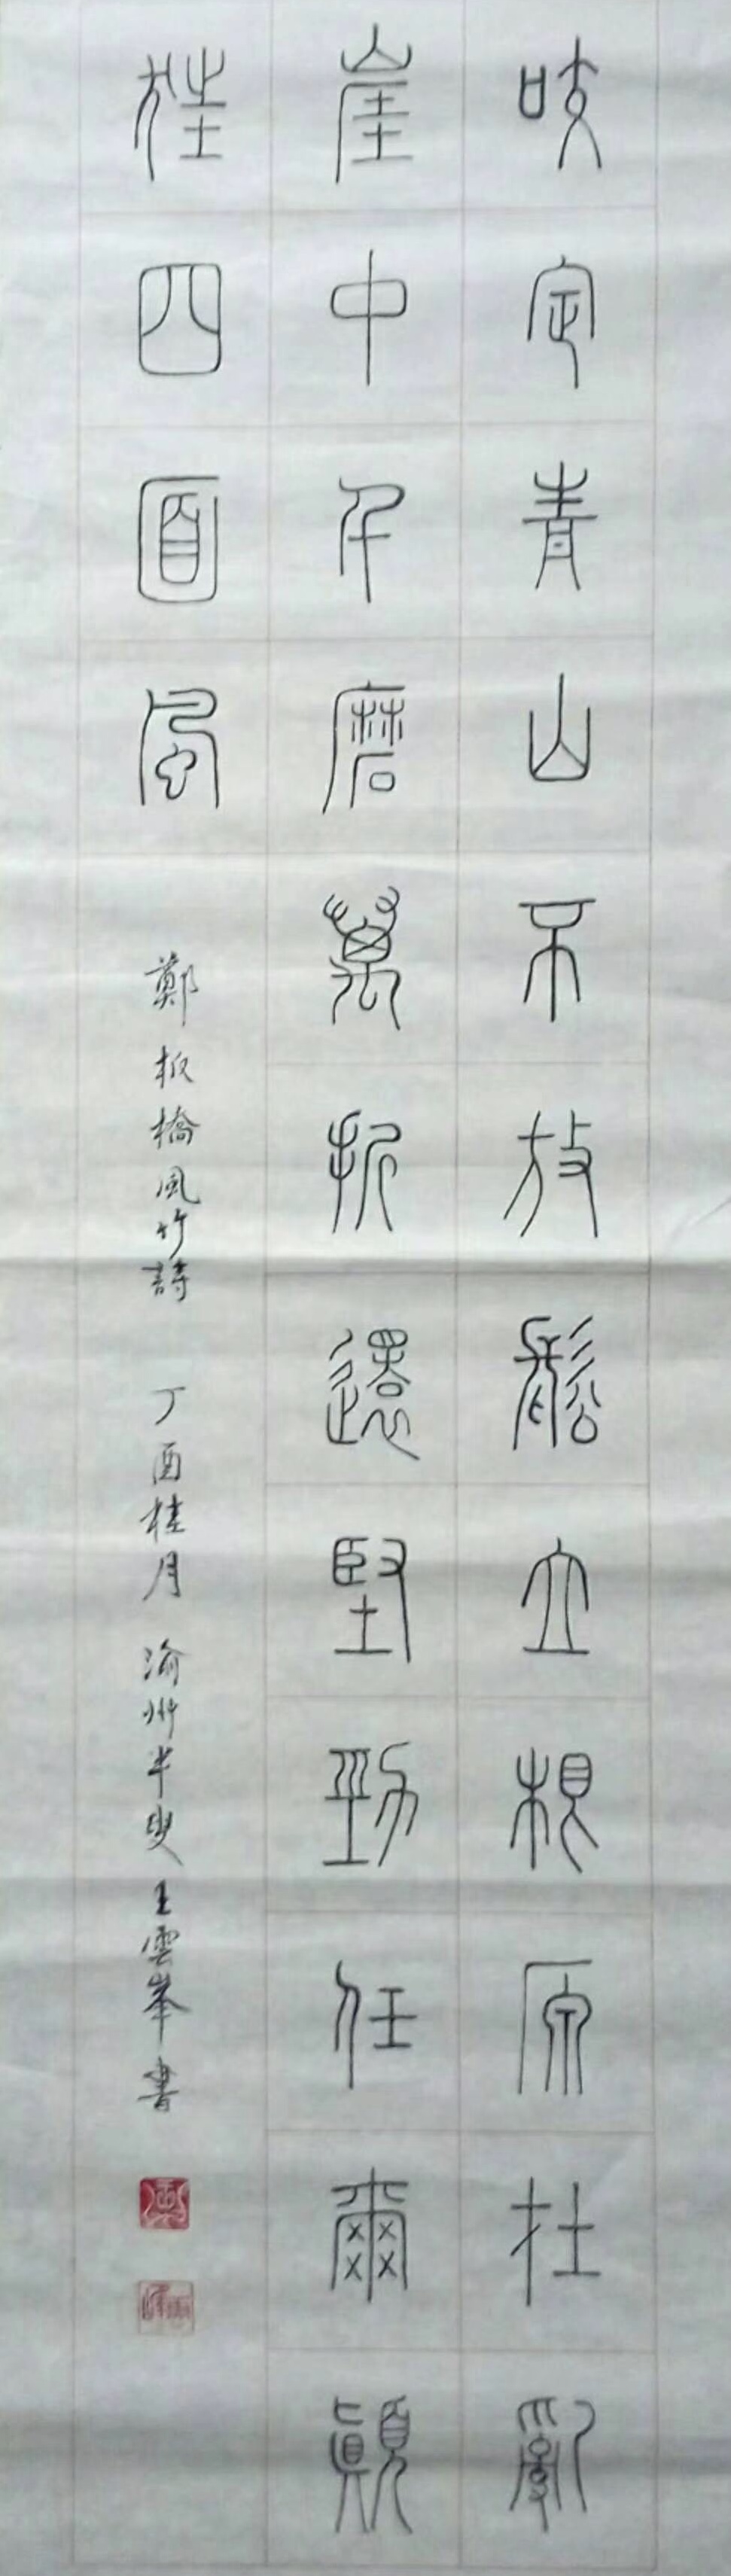 咬定青山不放鬆立根原在亂
崖中千磨萬折還堅勁任爾顛
狂四面風
鄭板橋風竹詩 丁酉桂月 渝州半叟王雲峯書